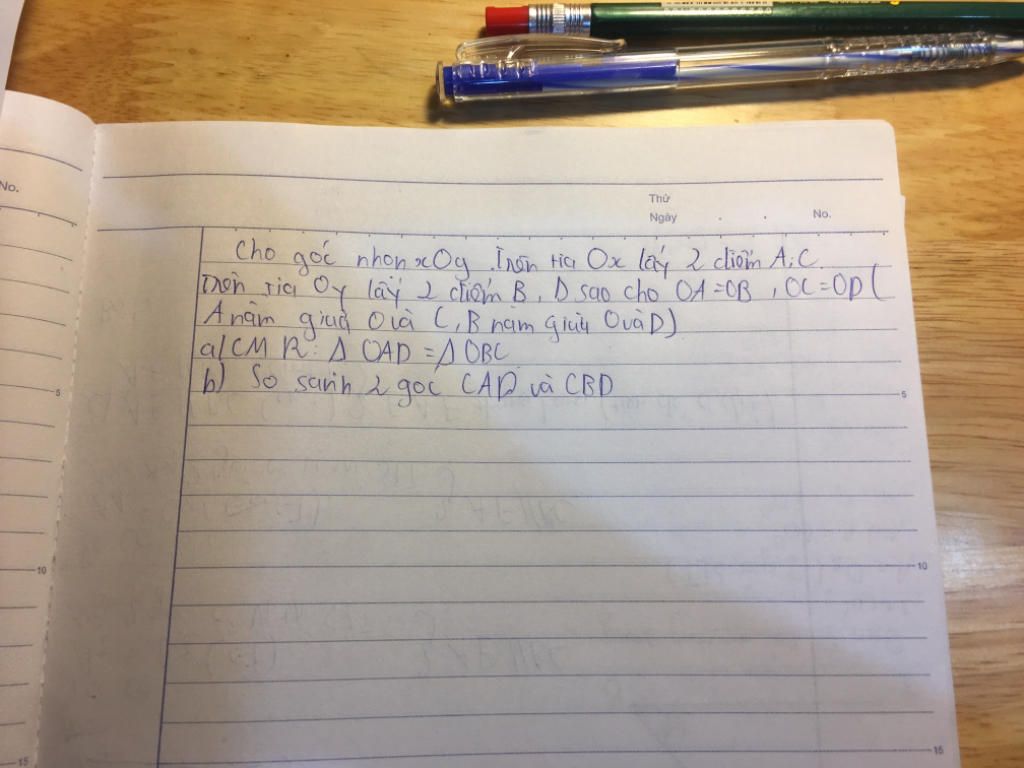 No.
Thứ
Ngày . . No.
Cho góc nhọn xOy. Trên tia Ox lấy 2 điểm A; C.
Trên tia Oy lấy 2 điểm B, D sao cho OA=OB, OC=OD (
A nằm giữa O và C, B nằm giữa O và D)
a/ CMR: Δ OAD = Δ OBC
b) So sánh 2 góc CAD và CBD
5
5
10
10
15
15